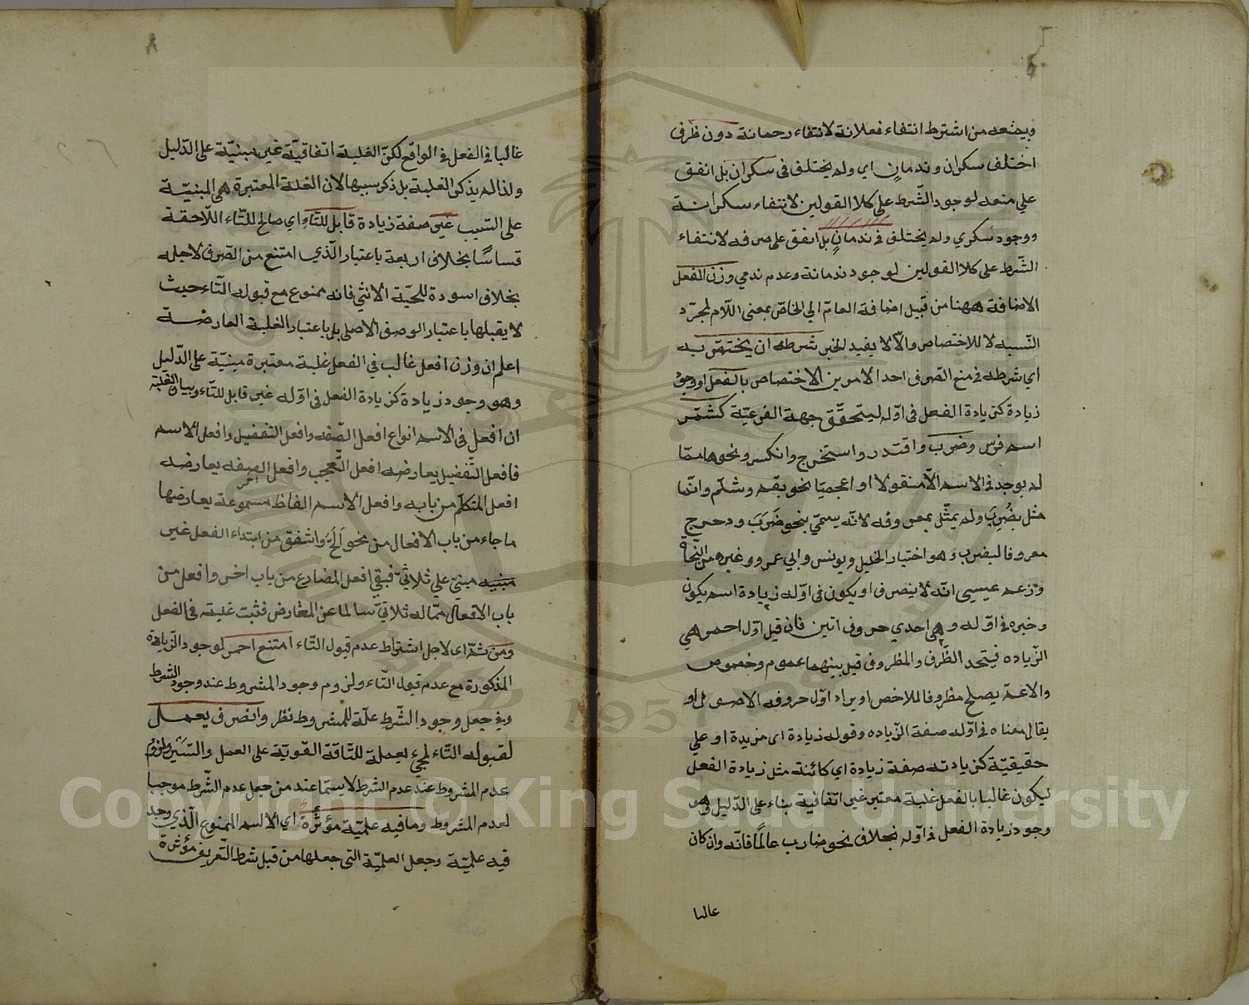 ويمنعه من اشترط انتفاء فعلانة لانتفاء رحمانة دون ظرف
اختلف سكران وندمان اي ولم يختلف في سكران بل اتفق
على منعه لوجود الشرط على كلا القولين لانتفاء سكرانة
ووجود سكرى ولم يختلف في ندمان بل اتفق على صرفه لانتفاء
الشرط على كلا القولين لوجود ندمانة وعدم ندمى وزن الفعل
الاضافة ههنا من قبيل اضافة العام الى الخاص بمعنى اللام لمجرد
النسبه لا للاختصاص والا لا يفيد الخبر شرطه ان يختص به
اي شرطه في منع الصرف احد الامرين الاختصاص بالفعل او وجود
زيادة كزيادة الفعل في اوله ليتحقق جهة الفرعية كشمر
اسم فرس وضرب واقتدر واستخرج وانكسر ونحوها مما
لم يوجد في الاسم الا منقولا او اعجميا نحو بقم وشلم وانما
مثل بضرب ولم يمثل بمعروفه لانه يسمى بنحو ضرب ودحرج
معروفا لينصرف وهو اختيار الخليل ويونس وابي عمرو وغيرهم من النحاة
وزعم عيسى انه لا ينصرف او يكون في اوله زيادة اسم يكون
وخبره في اوله وهي احدى حروف اتين فان قيل اول احمر هي
الزياده فيتحد الظرف والمظروف قيل بينهما عموم وخصوص
والاعم يصلح مظروفا للاخص او يراد اول حروفه الاصول او
يقال معناه في اوله صفة الزياده وقوله زيادة اي مزيدة او على
حقيقية كزيادته صفة زيادة اي كائنة مثل زيادة الفعل
ليكون غالبا بالفعل غلبة معتبر غير اتفاقية بناء على الدليل هو
وجود زيادة الفعل في اوله بخلاف نحو ضارب عالما فانه وان كان
غالبا
غالبا في الفعل في الواقع لكن الغلبة اتفاقية غير مبنية على الدليل
ولذا لم يذكر الغلبة بل ذكر سببها لان الغلبة المعتبرة هي المبنية
على السبب غير صفة زيادة قابل للتاء اي صالح للتاء اللاحقة
قساسا بخلاف اربعة باعتبار الذي امتنع من الصرف لاجله
بخلاف اسودة للحية الانثى فانه ممنوع مع قبوله التاء حيث
لا يقبلها باعتبار الوصف الاصلي بل باعتبار الغلبة العارضة
اعلم ان وزن افعل غالب في الفعل غلبة معتبرة مبنية على الدليل
وهو وجود زيادة كزيادة الفعل في اوله غير قابل للتاء وبيان الغلبة
ان افعل في الاسم انواع افعل الصفه وافعل التفضيل وافعل الاسم
فافعل التفضيل يعارضه افعل التعجب وافعل الصفه يعارضه
افعل المتكلم من بابه وافعل الاسم الفاظ مسموعة يعارضها
ما جاء من باب الافعال من نحو واشفق من ابتداء الفعل غير
مبنيه مبني على ثلاثي فبقي افعل المضارع من باب اخر وافعل من
باب الافعال مما له ثلاثي سالما عن المعارض فثبت غلبته في الفعل
ومن ثم اي لاجل اشتراط عدم قبول التاء امتنع احمر لوجود الزيادة
المذكورة مع عدم قبول التاء ولزوم وجود المشروط عند وجود الشرط
وفي جعل وجود الشرط علة للمشروط نظر وانصرف يعمل
لقبوله التاء لمجيء يعملة للناقة القوية على العمل والسير ولزوم
عدم المشروط عند عدم الشرط لا سيما عند من جعل عدم الشرط موجبا
لعدم المشروط وما فيه علمية مؤثرة اي الاسم الممنوع الذي وجد
فيه علمية وجعل العلمية التي جعلها من قبل شرط التعريف مؤثرة